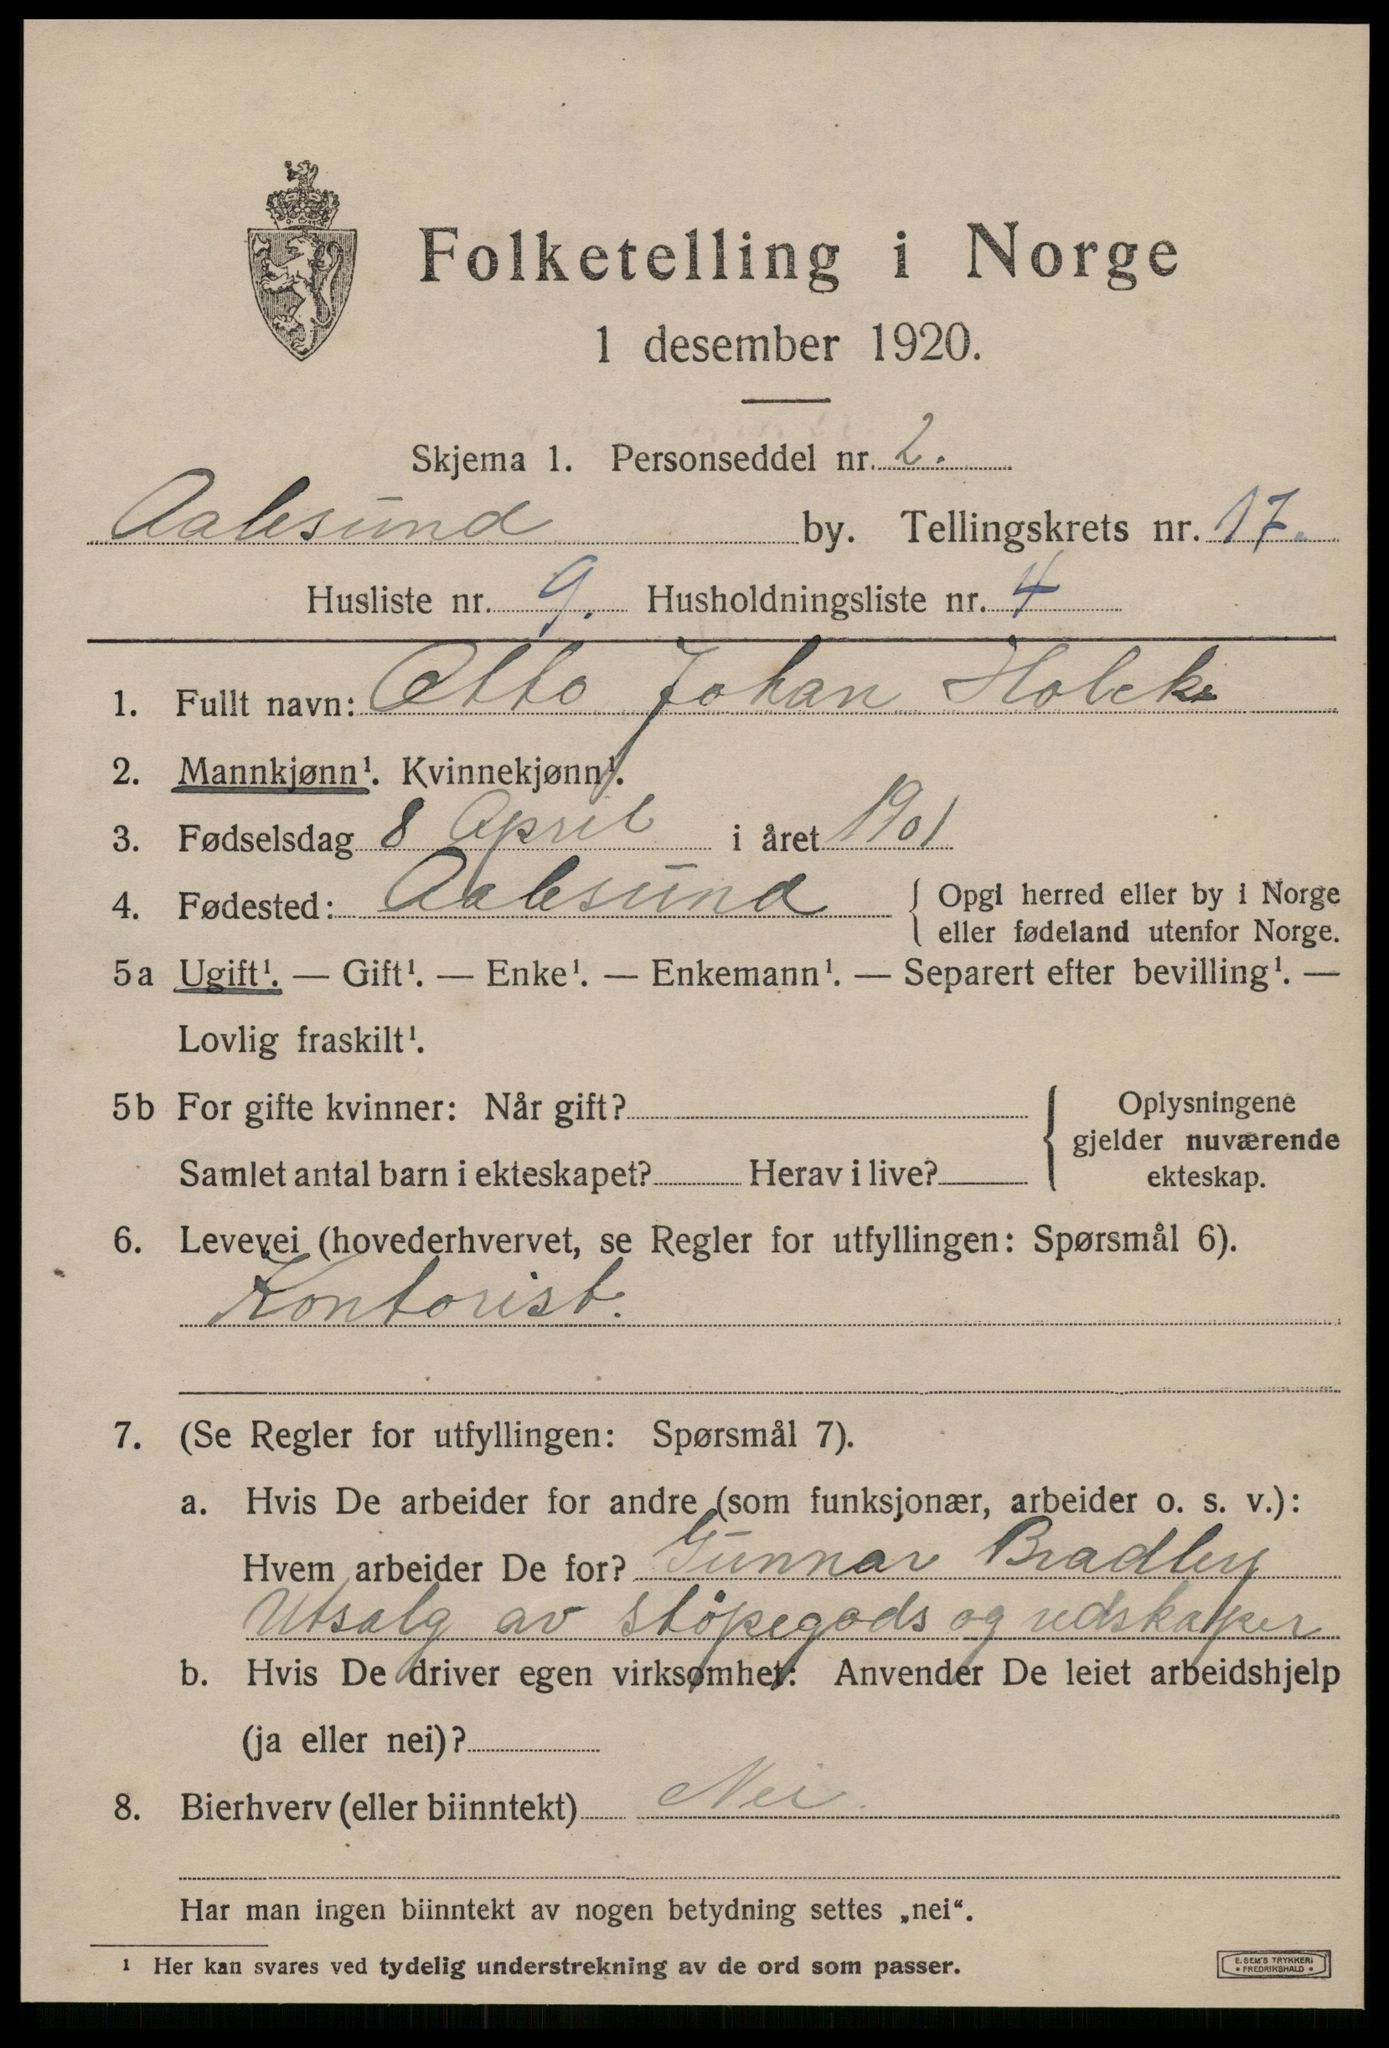 Folketelling i Norge
1 desember 1920.
Skjema 1. Personseddel nr. 2.
Aalesund by. Tellingskrets nr. 17.
Husliste nr. 9. Husholdningsliste nr. 4
1. Fullt navn: Otto Johan Holck
2. Mannkjønn¹. Kvinnekjønn¹.
3. Fødselsdag 8 April i året 1901
4. Fødested: Aalesund { Opgi herred eller by i Norge
eller fødeland utenfor Norge.
5a Ugift¹. — Gift¹. — Enke¹. — Enkemann¹. — Separert efter bevilling¹. —
Lovlig fraskilt¹.
5b For gifte kvinner: Når gift? { Oplysningene
gjelder nuværende
Samlet antal barn i ekteskapet? Herav i live? ekteskap.
6. Levevei (hovederhvervet, se Regler for utfyllingen: Spørsmål 6).
Kontorist.
7. (Se Regler for utfyllingen: Spørsmål 7).
a. Hvis De arbeider for andre (som funksjonær, arbeider o. s. v.):
Hvem arbeider De for? Gunnar Bradley
Utsalg av støpegods og redskaper
b. Hvis De driver egen virksomhet: Anvender De leiet arbeidshjelp
(ja eller nei)?
8. Bierhverv (eller biinntekt) Nei.
Har man ingen biinntekt av nogen betydning settes „nei“.
¹ Her kan svares ved tydelig understrekning av de ord som passer.
E. SEM'S TRYKKERI
• FREDRIKSHALD •